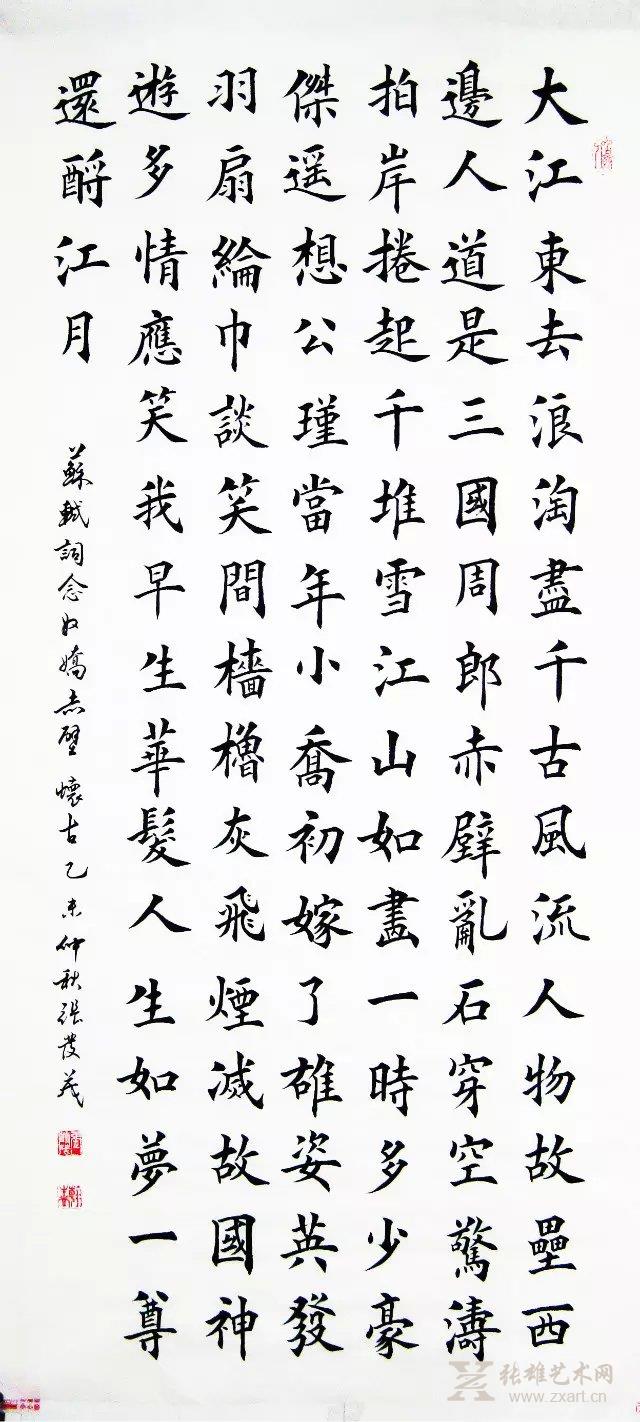 大江東去浪淘盡千古風流人物故壘西
邊人道是三國周郎赤壁亂石穿空驚濤
拍岸捲起千堆雪江山如畫一時多少豪
傑遥想公瑾當年小喬初嫁了雄姿英發
羽扇綸巾談笑間檣櫓灰飛煙滅故國神
遊多情應笑我早生華髮人生如夢一尊
還酹江月
蘇軾詞念奴嬌赤壁懷古乙未仲秋張發義
张雄艺术网
www.zxart.cn